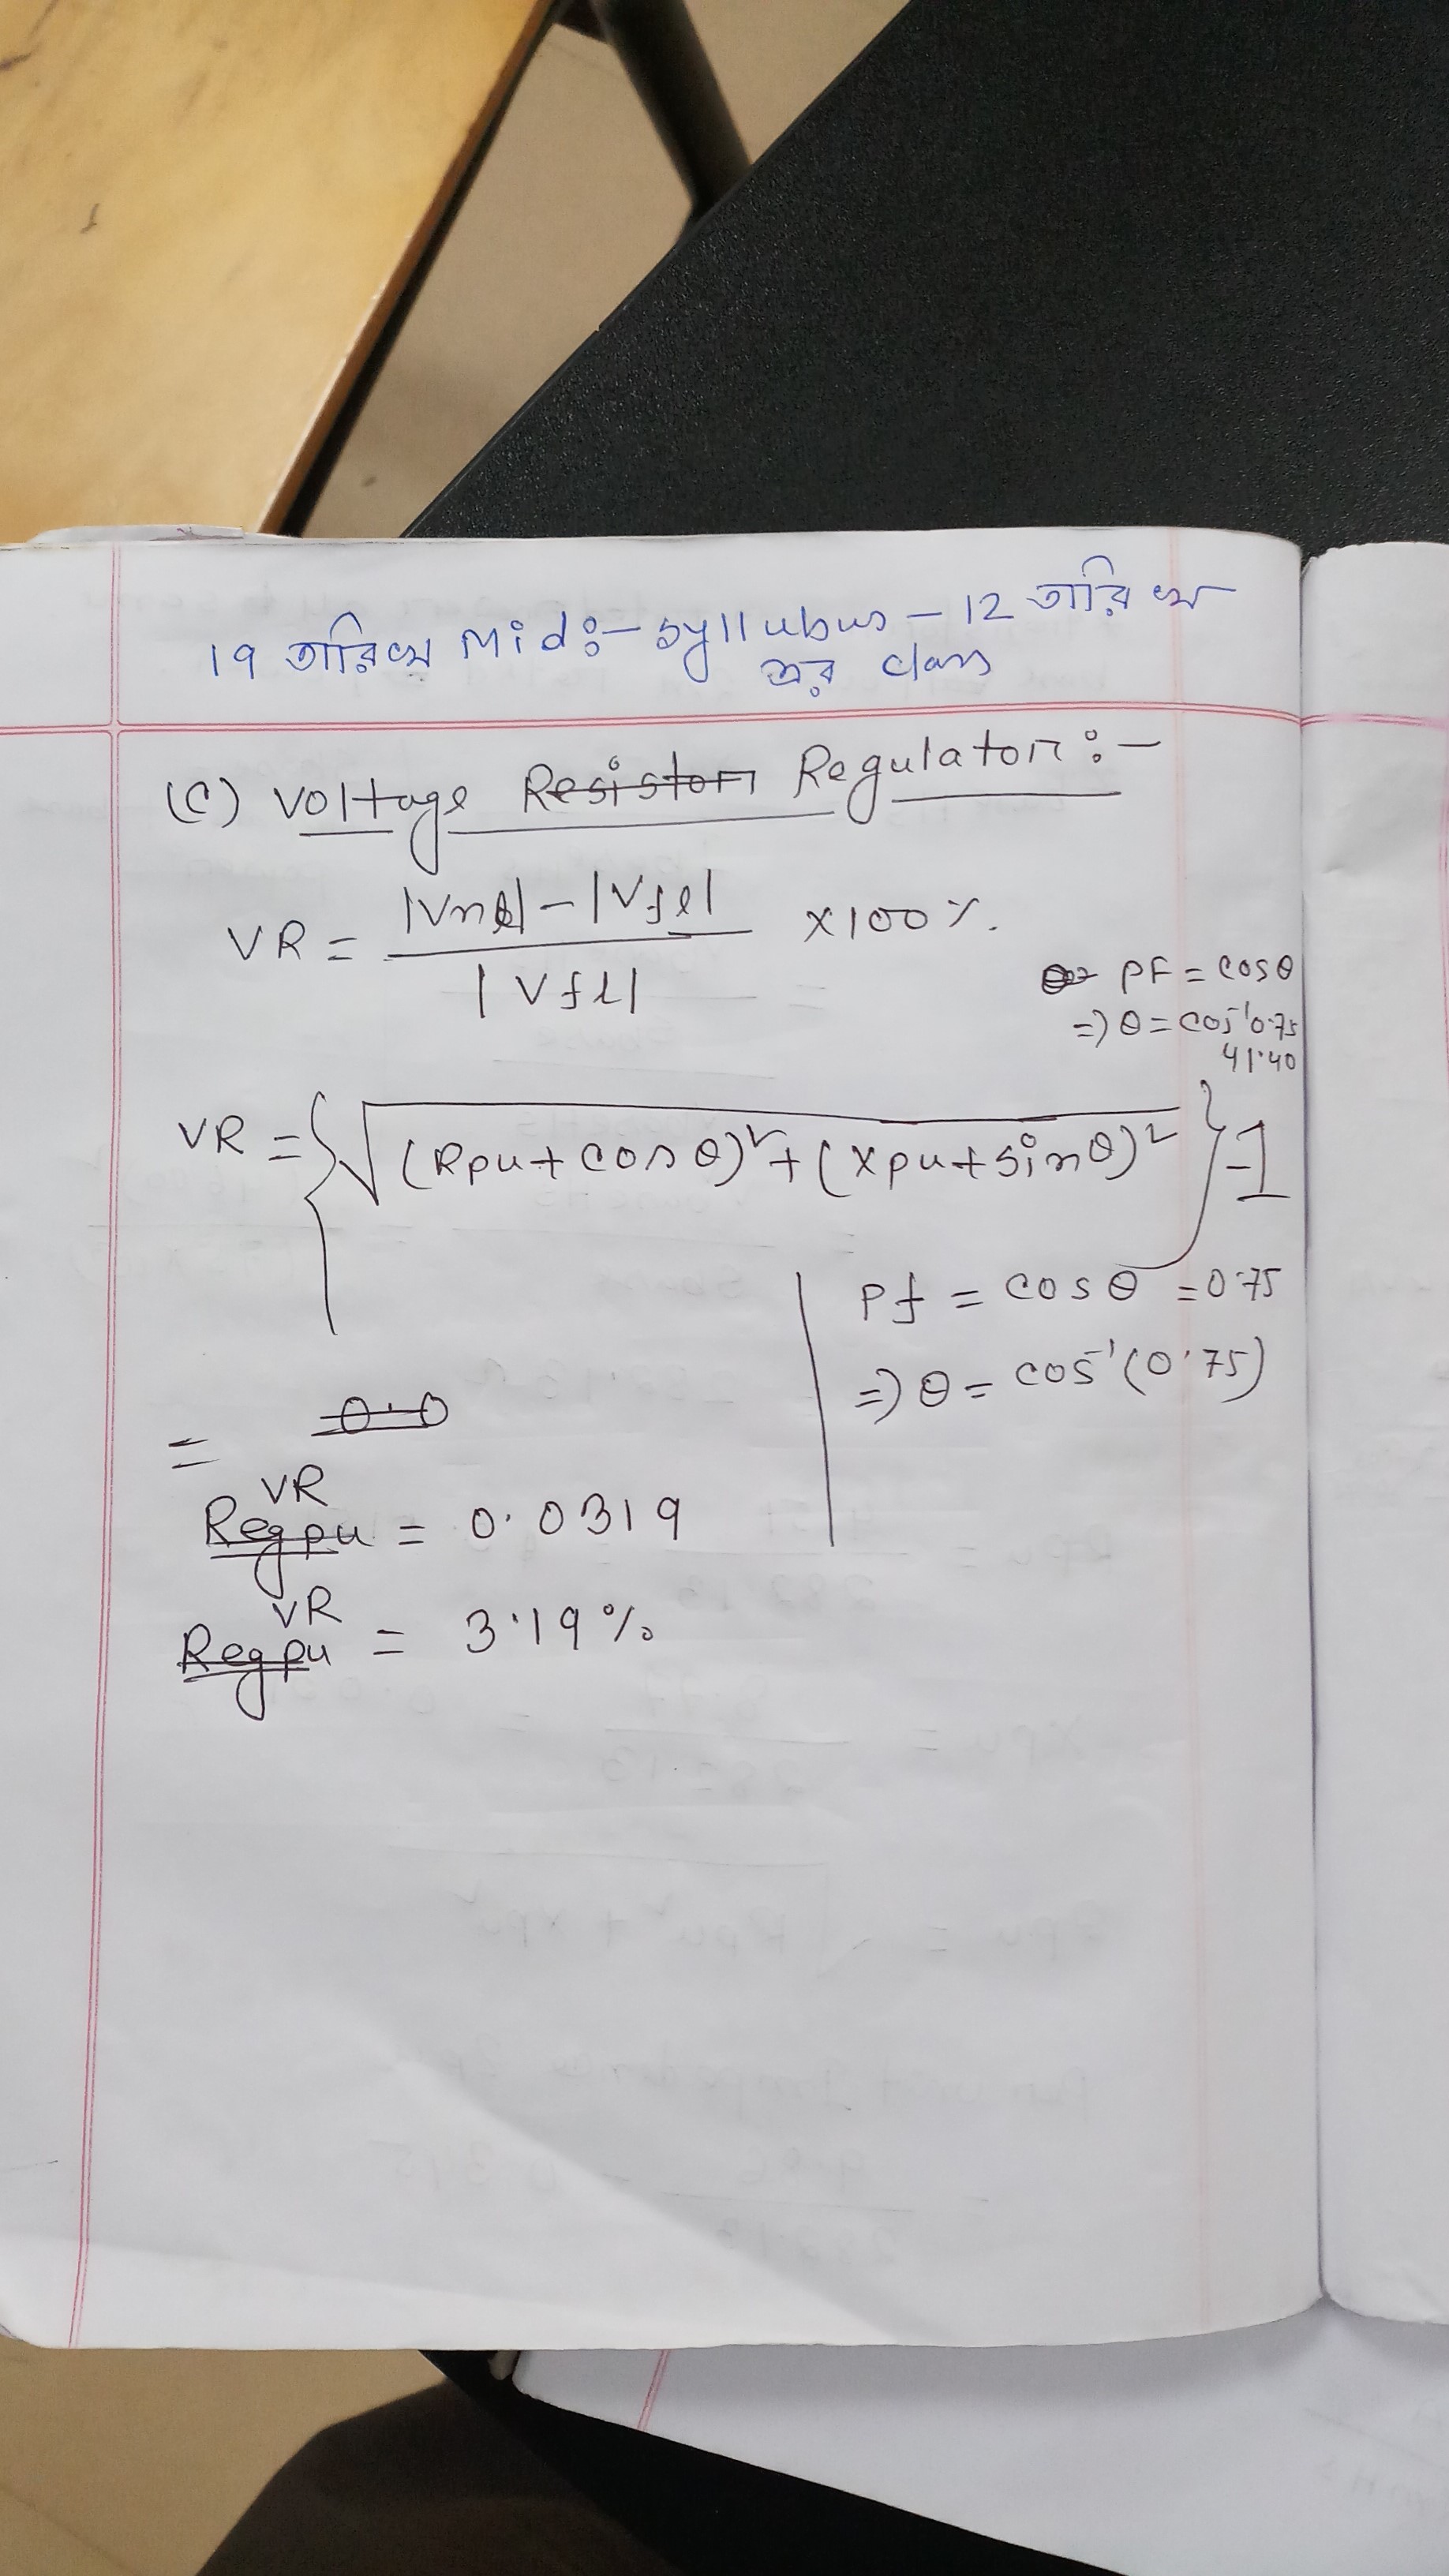 19 তারিখ Mid:- syllubus - 12 তারিখ
এর class
(C) Voltage Resistor Regulator :-
VR = |Vnl| - |Vfl| / |Vfl| × 100 %.
PF = cosθ
=> θ = cos⁻¹ 0.75
41.40
VR = {√(Rpu + cosθ)² + (Xpu + sinθ)²} - 1
Pf = cosθ = 0.75
=> θ = cos⁻¹(0.75)
= 0.0
VR
Regpu = 0.0319
VR
Regpu = 3.19%